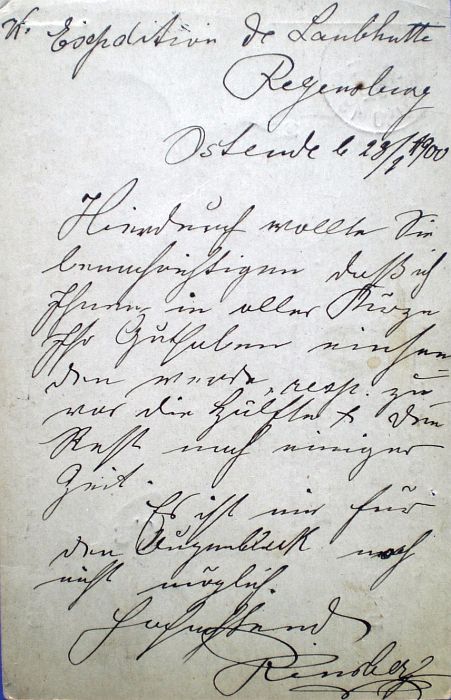 Expedition de Laubhutte
Regensburg
Ostende le 28/ 1900
Hierdurch wollte Sie
benachrichtigen daß ich
Ihnen in aller Kürze
Ihr Guthaben einsen-
den werde, resp. zu-
vor die Hälfte & den
Rest nach einiger
Zeit.
Es ist mir für
den Augenblick noch
nicht möglich.
Hochachtend